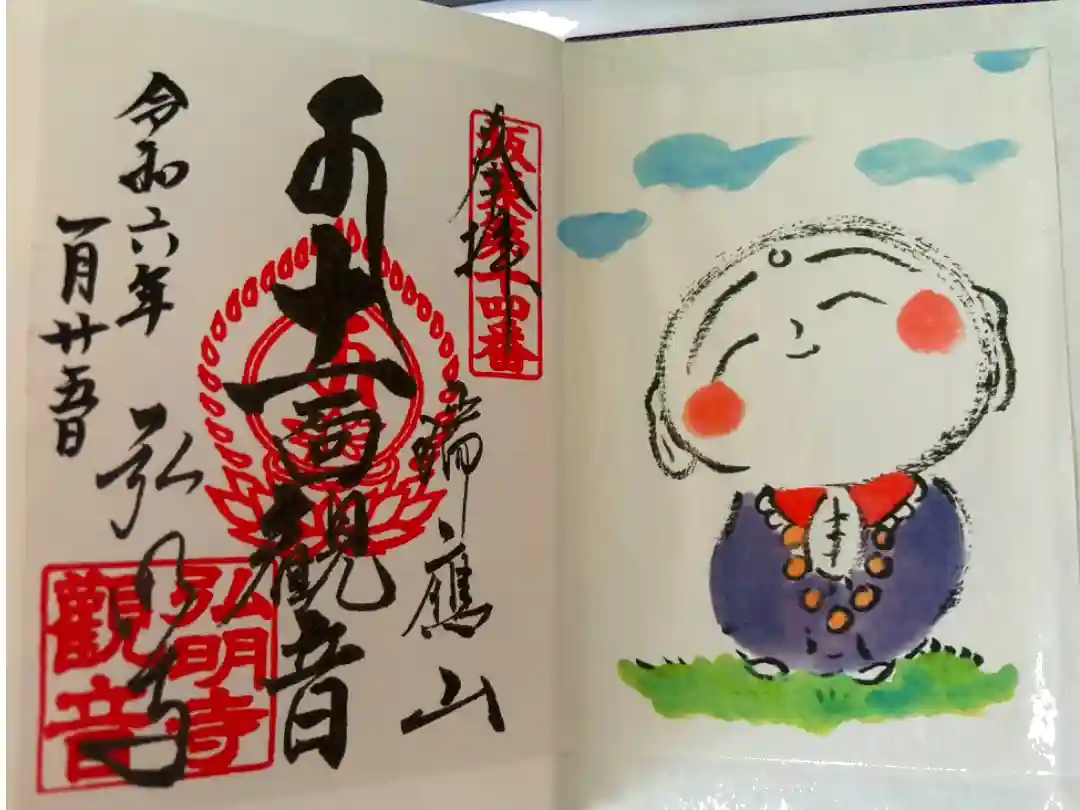 奉拝
坂東第十四番
瑞應山
十一面観音
令和六年
一月廿五日
弘明寺
弘明寺
觀音